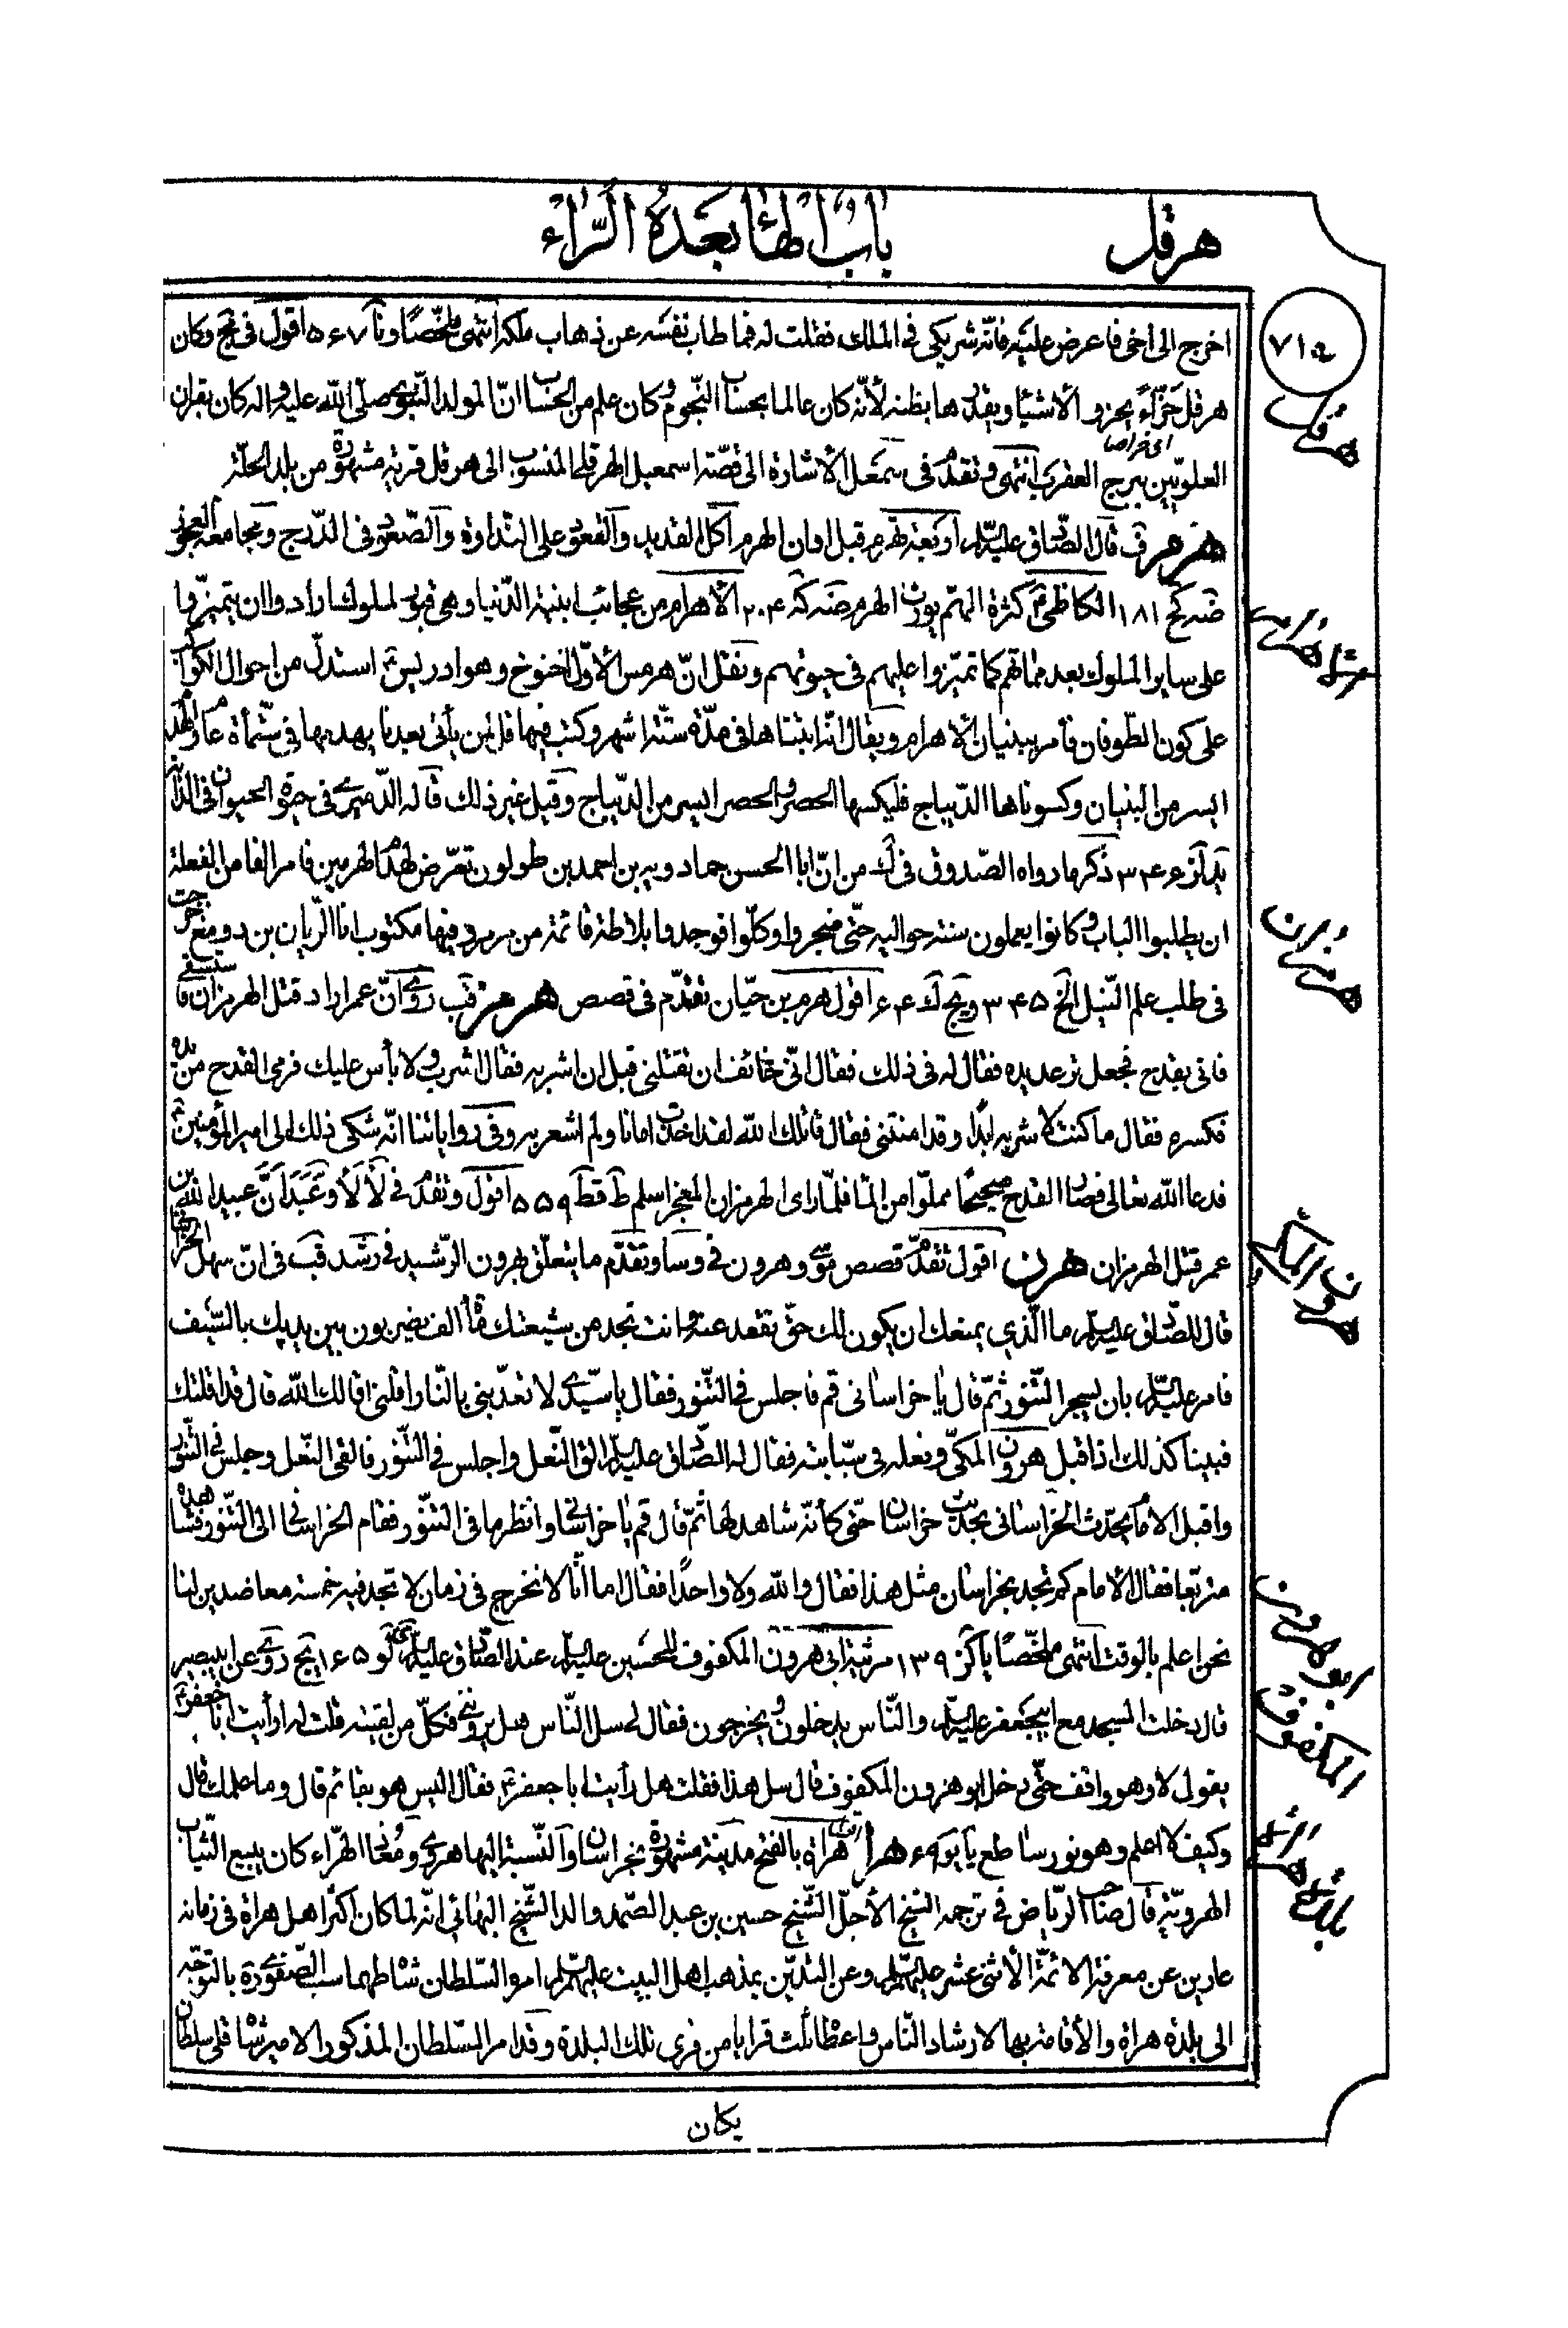 هرقل
باب الهاء بعده الراء
٧١٥
اخرج الى اخى فاعرض عليه فانّه شريكى في الملك فقلت له فما طاب نفسه عن ذهاب ملكه انتهى ملخّصًا ونآ ٥۶٧ اقول في مج وكان
هرقل حزّاءً يحزو الأشياء ويقدّرها بظنه لأنّه كان عالما بحساب النّجوم وكان علم من الحساب انّ المولد النّبوى صلى الله عليه واله كان بقران
اى خراصا
العلويّين ببرج العقرب انتهى وتقدّم في سمعل الأشارة الى قصّة اسمعيل الهرقلى المنسوب الى هرقل قرية مشهورة من بلد الحلّة
هرم ف قال الصّادق عليه السلام اربعة تهرم قبل اوان الهرم اكل القديد والقعود على النداوة والصّعود في الدّرج ومجامعة العجوز
ضه كج ١٨١ الكاظمى كثرة الهمّ يورث الهرم ضه كه ٢٠۴ الأهرام من عجائب ابنية الدّنيا وهى قبور لملوك ارادوا ان يتميّزوا
على ساير الملوك بعد مماتهم كما تميّزوا عليهم في حيوتهم ونقل انّ هرمس الأوّل اخنوخ وهو ادريس استدلّ من احوال الكواكب
على كون الطّوفان فأمر ببنيان الأهرام ويقال انّه ابتناها في مدّة ستّة اشهر وكتب فيها قل لمن يأتى بعدنا يهدمها في ستّمأة عام والهدم
ايسر من البنيان وكسوناها الدّيباج فليكسها الحصر والحصر ايسر من الدّيباج وقيل غير ذلك قاله الدّميرى في حيوة الحيوان في الدّابّة
يد آز ٣۴۶ ذكر ما رواه الصّدوق في ك من انّ ابا الحسن حمادويه بن احمد بن طولون تعرّض لهذا الهرمين فامر الفا من الفعلة
ان يطلبوا الباب وكانوا يعملون سنة حواليه حتّى ضجروا وكلّوا فوجدوا بلاطة قائمة من مرمر وفيها مكتوب انا الرّيان بن دومغ خرجت
في طلب علم النّيل الخ ٣۴۵ ويج ك ۶۴ اقول هرم بن حيّان تقدّم في قصص هرمز قب روى انّ عمر اراد قتل الهرمزان فاستسقى
فاتى بقدح فجعل ترعد يده فقال له في ذلك فقال انّى خائف ان تقتلنى قبل ان اشربه فقال اشرب ولا بأس عليك فرمى القدح من يده
فكسره فقال ما كنت لاشربه ابدًا وقد امنتنى فقال قاتلك الله لقد اخذت امانا ولم اشعر به وفى رواياتنا انّه شكى ذلك الى امير المؤمنين
فدعا الله تعالى فصار القدح صحيحًا مملوّا من الماء فلمّا راى الهرمزان المعجز اسلم ط قط ۵۵٩ اقول وتقدّم في لألأ وعبد انّ عبيد الله بن
عمر قتل الهرمزان هرن اقول تقدّم قصص موسى وهرون في وسا وتقدّم ما يتعلّق بهرون الرّشيد في رشد قب فى انّ سهل الخراسانى
قال للصّادق عليه السلام ما الّذى يمنعك ان يكون لك حقّ تقعد عنه وانت تجد من شيعتك مأة الف يضربون بين يديك بالسّيف
فامر عليه السلام بان يسجر التّنّور ثمّ قال يا خراسانى قم فاجلس في التّنّور فقال يا سيّدى لا تعذّبنى بالنّار اقلنى اقالك الله قال قد اقلتك
فبينا كذلك اذ اقبل هرون المكّى ونعله في سبّابته فقال له الصّادق عليه السلام الق النّعل واجلس في التّنّور فالقى النّعل وجلس في التّنّور
واقبل الامام يحدّث الخراسانى بحديث خراسان حتّى كأنّه شاهد لها ثمّ قال قم يا خراسانى وانظر ما في التّنّور فقام الخراسانى الى التّنّور فشاهده
متربّعا فقال الأمام كم تجد بخراسان مثل هذا فقال والله ولا واحدًا فقال اما انّا لا نخرج في زمان لا تجد فيه خمسة معاضدين لنا
نحن اعلم بالوقت انتهى ملخّصًا يآكز ١٣٩ مرثية ابى هرون المكفوف للحسين عليه السلام عند الصّادق عليه السلام ى لو ١۶۵ يج روى عن ابى بصير
قال دخلت المسجد مع ابيجعفر عليه السلام والنّاس يدخلون ويخرجون فقال لى سل النّاس هل يروننى فكلّ من لقيته قلت له ارأيت ابا جعفر
يقول لا وهو واقف حتّى دخل ابو هرون المكفوف قال سل هذا فقلت هل رأيت ابا جعفر فقال اليس هو بقائم قال وما علمك قال
وكيف لا اعلم وهو نور ساطع يآ يو ۶٩ هرا هراة بالفتح مدينة مشهورة بخراسان والنّسبة اليها هروىّ ومعاذ الهرّاء كان يبيع الثّياب
الهرويّة قال صاحب الرّياض في ترجمة الشيخ الأجلّ الشّيخ حسين بن عبد الصّمد والد الشّيخ البهائى انّه لما كان اكثر اهل هراة في زمانه
عارين عن معرفة الائمّة الأثنى عشر عليهم السلام وعن التديّن بمذهب اهل البيت عليهم السلام امره السّلطان شاه طهماسب الصّفوى بالتوجّه
الى بلدة هراة والأقامة بها لارشاد النّاس واعطائه ثلث قرايا من قرى تلك البلدة وقد امر السّلطان المذكور الامير شاه قلى سلطان
هرقل
هرمزان
هرون المكّى
ابى هرون
المكفوف
يكان